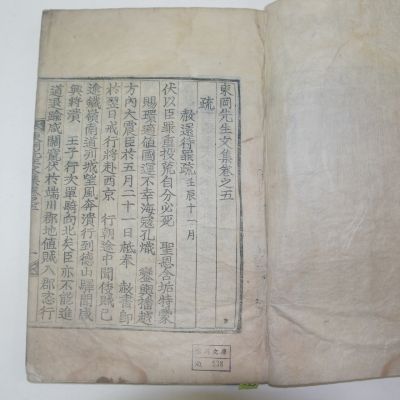 東岡先生文集卷之五
疏
赦還行在疏 壬辰十一月
伏以臣罪重投荒自分必死 聖恩含垢特蒙
賜環適値國運不幸海寇孔熾 鑾輿播越
方內大震臣於五月二十一日祗奉 赦書卽
於翌日戒行將赴西京 行朝途中聞倭賊已
逾鐵嶺南道列城望風奔潰行到德山驛聞咸
興將潰 王子行次單騎向北矣臣亦不能進
道浪踰咸關竄伏於端川郡地値賊入郡恣行
文庫
538